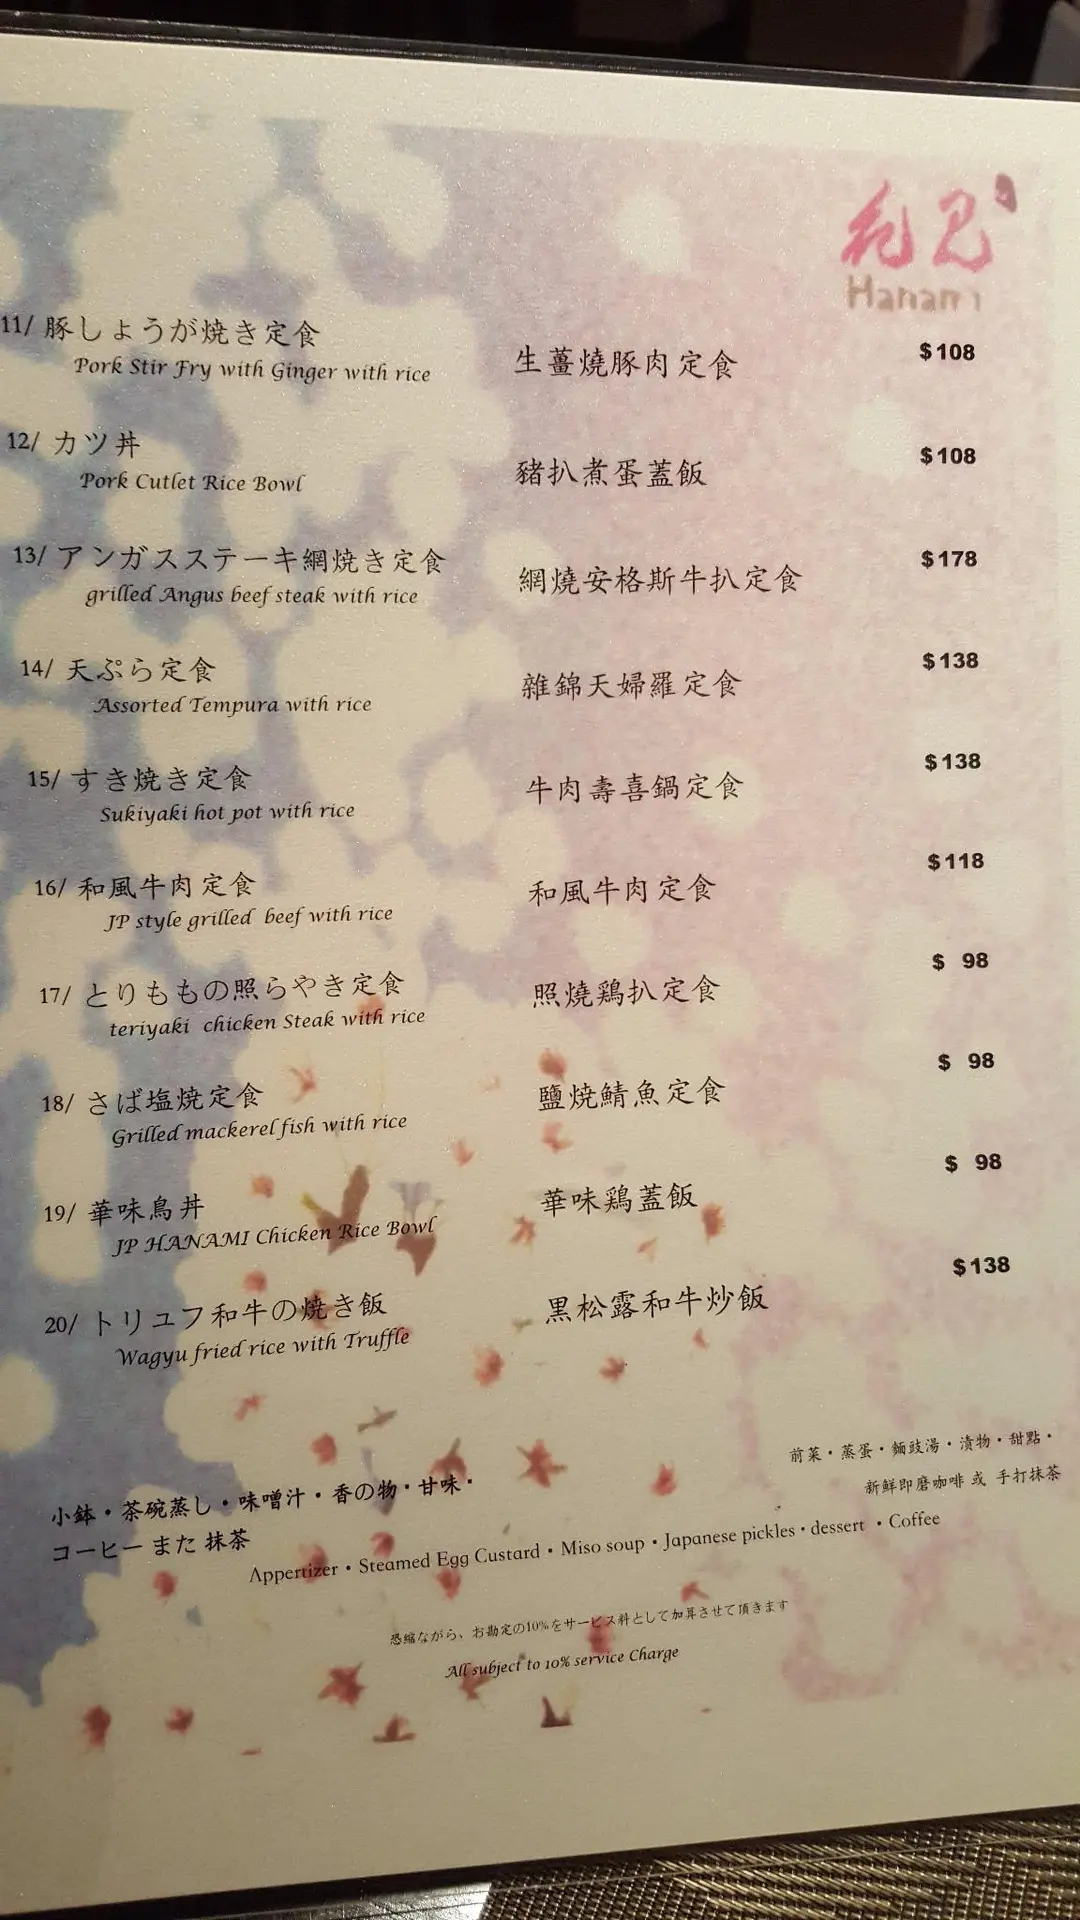 花見
Hanami
11/ 豚しょうが焼き定食
Pork Stir Fry with Ginger with rice
生薑燒豚肉定食
$108
12/ カツ丼
Pork Cutlet Rice Bowl
豬扒煮蛋蓋飯
$108
13/ アンガスステーキ網焼き定食
grilled Angus beef steak with rice
網燒安格斯牛扒定食
$178
14/ 天ぷら定食
Assorted Tempura with rice
雜錦天婦羅定食
$138
15/ すき焼き定食
Sukiyaki hot pot with rice
牛肉壽喜鍋定食
$138
16/ 和風牛肉定食
JP style grilled beef with rice
和風牛肉定食
$118
17/ とりももの照らやき定食
teriyaki chicken Steak with rice
照燒鶏扒定食
$ 98
18/ さば塩焼定食
Grilled mackerel fish with rice
鹽焼鯖魚定食
$ 98
19/ 華味鳥丼
JP HANAMI Chicken Rice Bowl
華味鶏蓋飯
$ 98
20/ トリュフ和牛の焼き飯
Wagyu fried rice with Truffle
黒松露和牛炒飯
$138
前菜・蒸蛋・麵豉湯・漬物・甜點・
新鮮即磨咖啡 或 手打抹茶
小鉢・茶碗蒸し・味噌汁・香の物・甘味・
コーヒー また 抹茶
Appertizer • Steamed Egg Custard • Miso soup • Japanese pickles • dessert • Coffee
恐縮ながら、お勘定の10%をサービス料として加算させて頂きます
All subject to 10% service Charge